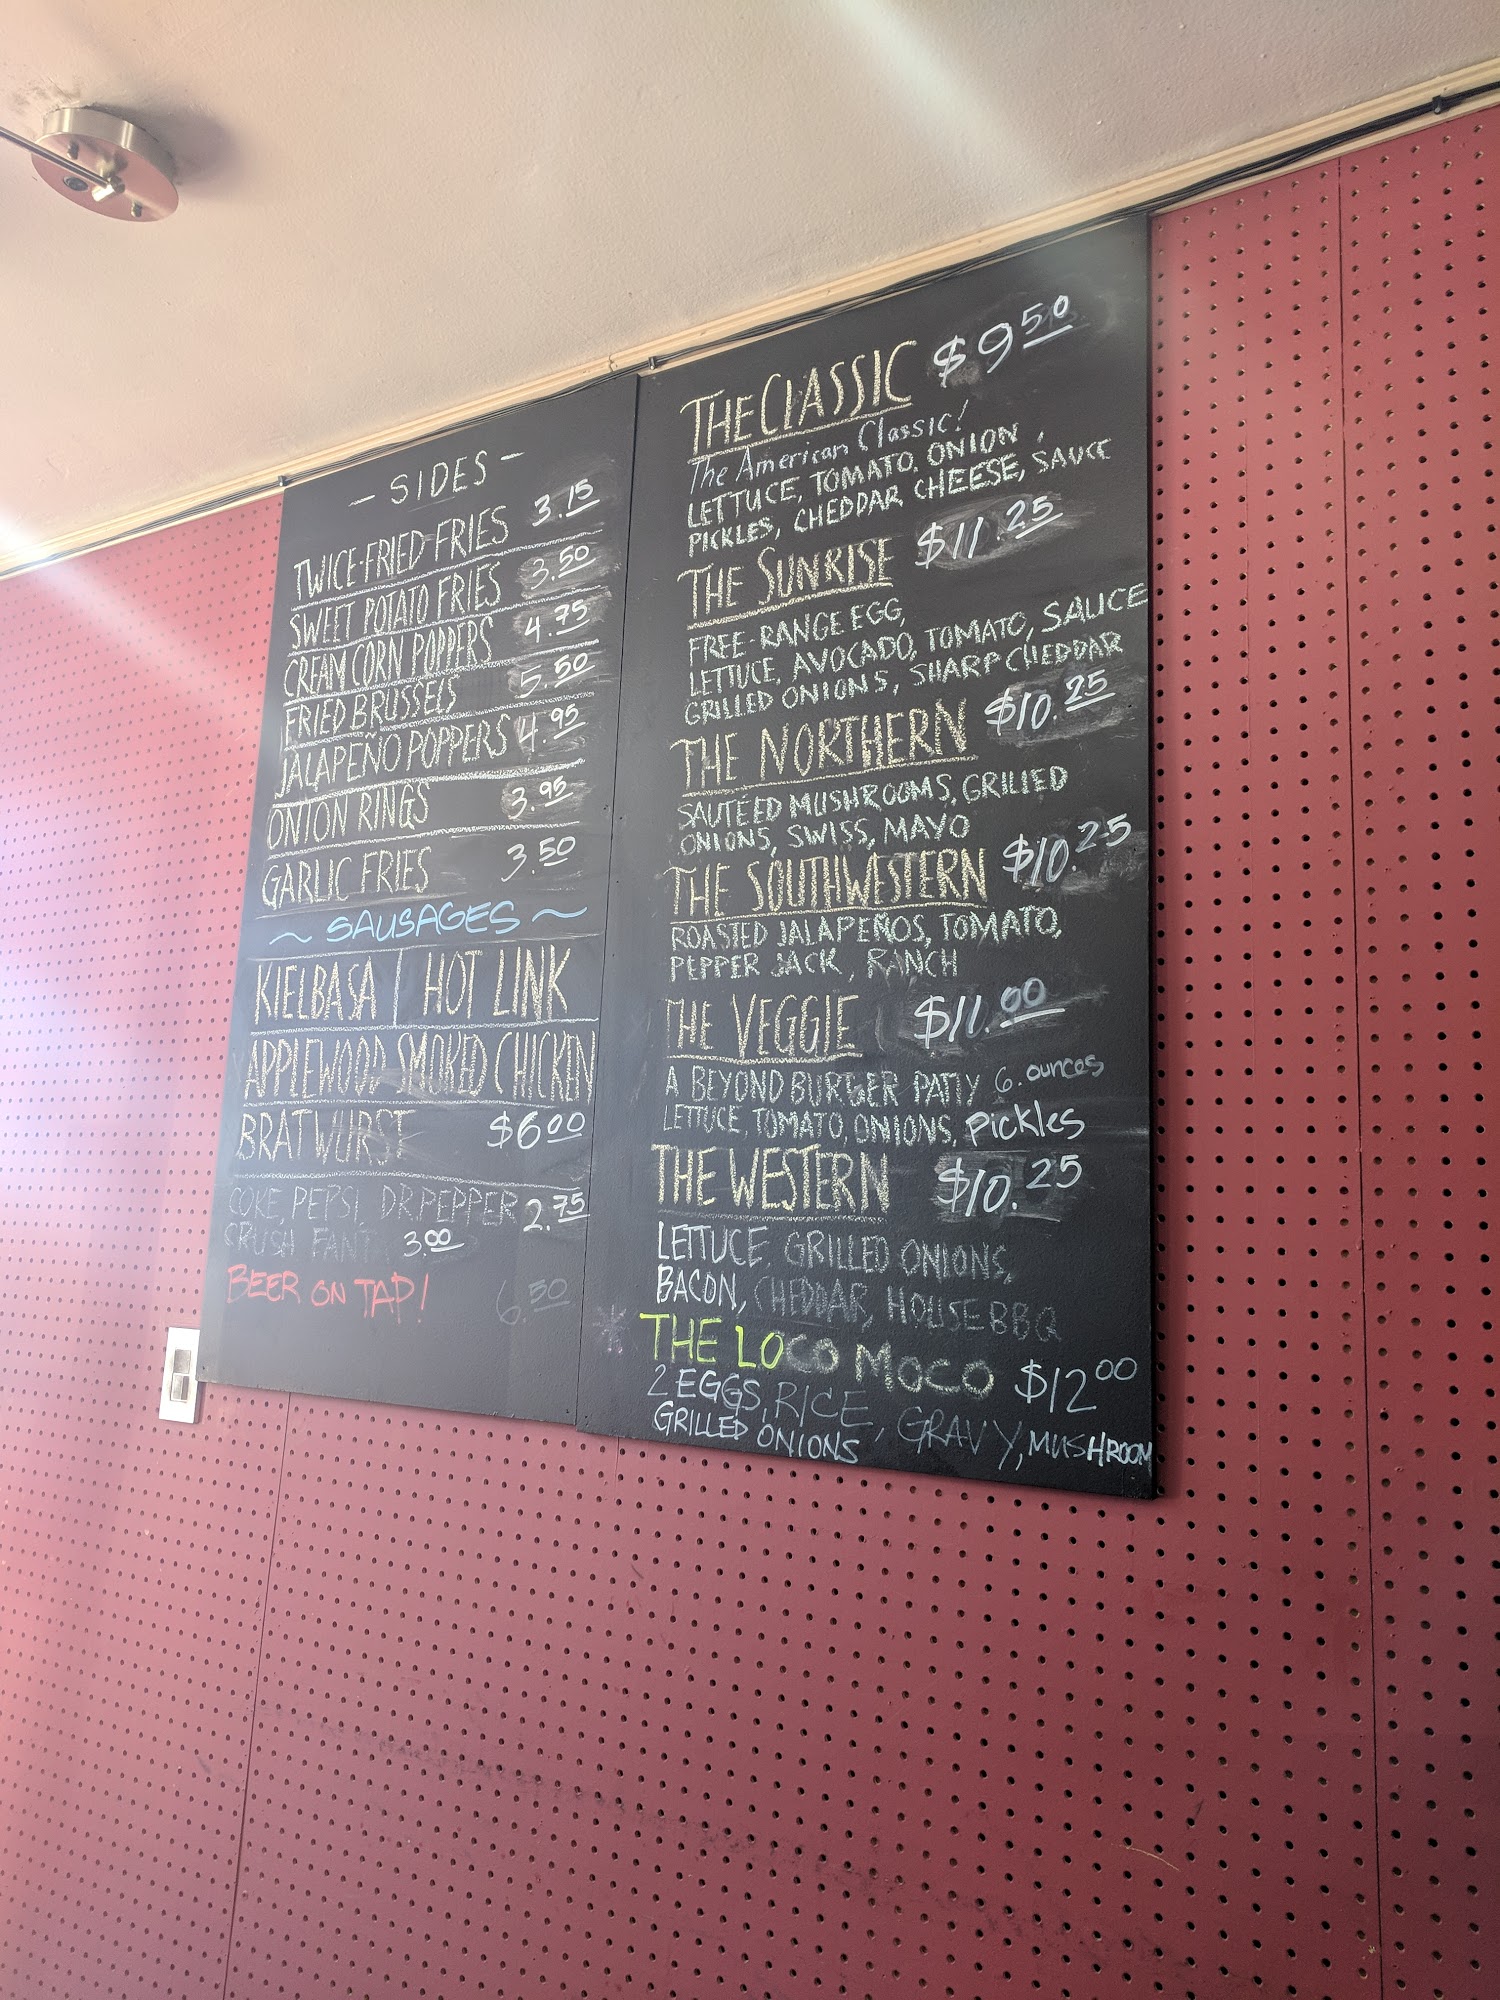 - SIDES -
TWICE-FRIED FRIES 3.15
SWEET POTATO FRIES 3.50
CREAM CORN POPPERS 4.75
FRIED BRUSSELS 5.50
JALAPEÑO POPPERS 4.95
ONION RINGS 3.95
GARLIC FRIES 3.50
~ SAUSAGES ~
KIELBASA | HOT LINK
APPLEWOOD SMOKED CHICKEN
BRATWURST $6.00
COKE, PEPSI, DR. PEPPER 2.75
CRUSH FANT 3.00
BEER ON TAP! 6.50
THE CLASSIC $9.50
The American Classic!
LETTUCE, TOMATO, ONION,
PICKLES, CHEDDAR CHEESE, SAUCE
THE SUNRISE $11.25
FREE-RANGE EGG,
LETTUCE, AVOCADO, TOMATO, SAUCE
GRILLED ONIONS, SHARP CHEDDAR
THE NORTHERN $10.25
SAUTÉED MUSHROOMS, GRILLED
ONIONS, SWISS, MAYO
THE SOUTHWESTERN $10.25
ROASTED JALAPEÑOS, TOMATO,
PEPPER JACK, RANCH
THE VEGGIE $11.00
A BEYOND BURGER PATTY 6. ounces
LETTUCE, TOMATO, ONIONS, Pickles
THE WESTERN $10.25
LETTUCE, GRILLED ONIONS,
BACON, CHEDDAR, HOUSE BBQ
* THE LOCO MOCO $12.00
2 EGGS, RICE, GRAVY, MUSHROOM
GRILLED ONIONS